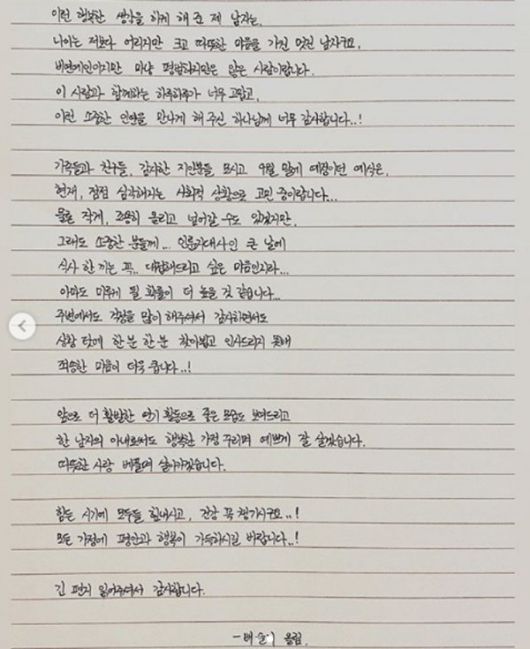 이런 행복한 생각을 하게 해 준 제 남자는,
나이는 저보다 어리지만 크고 따뜻한 마음을 가진 멋진 남자구요,
비연예인이지만 마냥 평범하지만은 않은 사람이랍니다.
이 사람과 함께하는 하루하루가 너무 고맙고,
이런 소중한 인연을 만나게 해 주신 하나님께 너무 감사합니다..!
가족들과 친구들, 감사한 지인분들 모시고 9월 말에 예정이던 예식은,
현재, 점점 심각해지는 사회적 상황으로 고민 중이랍니다...
물론 작게, 조용히 올리고 넘어갈 수도 있겠지만,
그래도 소중한 분들께... 인륜지대사인 큰 날에
식사 한 끼는 꼭.. 대접해드리고 싶은 마음인지라...
아마도 미루게 될 확률이 더 높을 것 같습니다...
주변에서도 걱정을 많이 해주셔서 감사하면서도
상황 탓에 한 분 한 분 찾아뵙고 인사드리지 못해
죄송한 마음이 더욱 큽니다..!
앞으로 더 활발한 연기 활동으로 좋은 모습도 보여드리고
한 남자의 아내로서도 행복한 가정 꾸리며 예쁘게 잘 살겠습니다.
따뜻한 사랑 베풀며 살아가겠습니다.
힘든 시기에 모두들 힘내시고, 건강 꼭 챙기시구요..!
모든 가정에 평안과 행복이 가득하시길 바랍니다..!
긴 편지 읽어주셔서 감사합니다.
- 배슬기 올림.